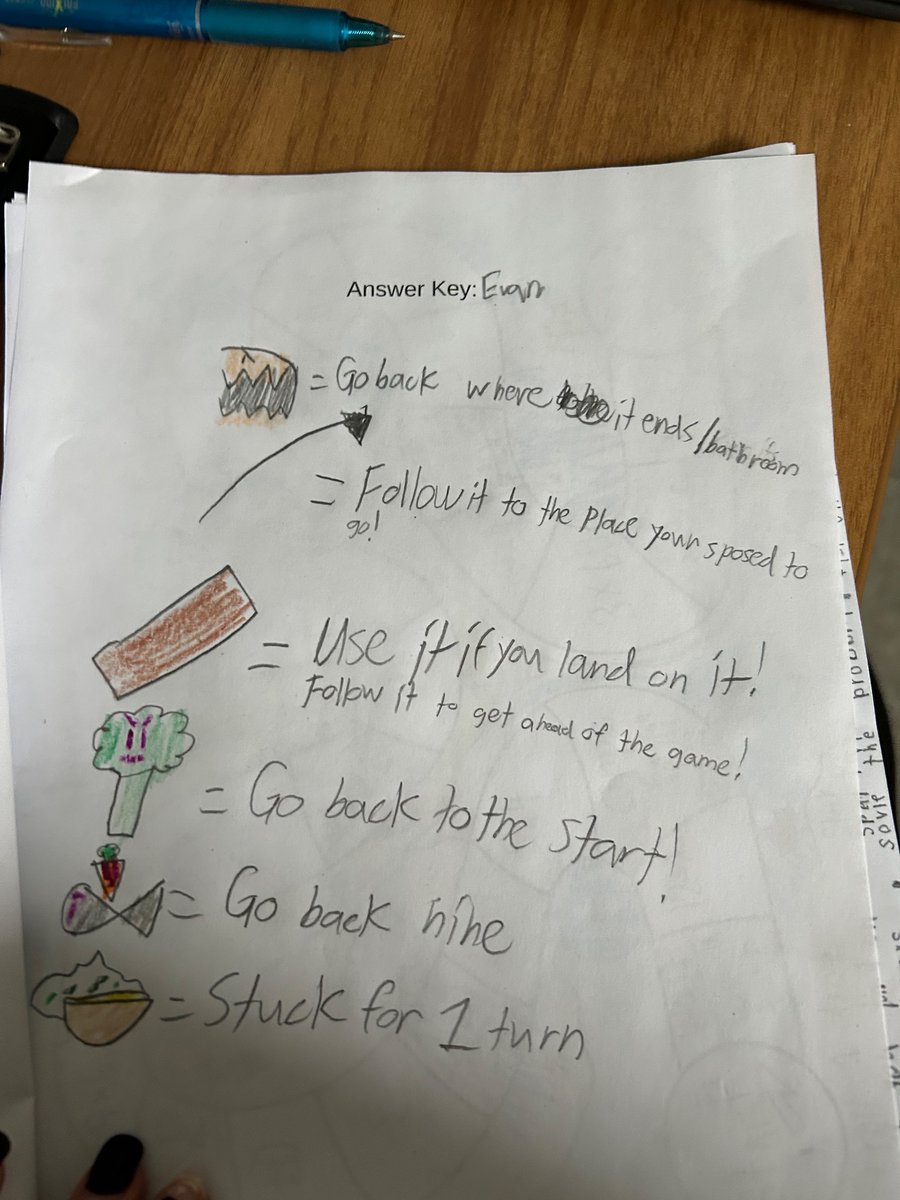 Answer Key: Evan
= Go back where it ends/bathroom
= Follow it to the place your sposed to
go!
= Use it if you land on it!
Follow it to get ahead of the game!
= Go back to the start!
= Go back nine
= Stuck for 1 turn